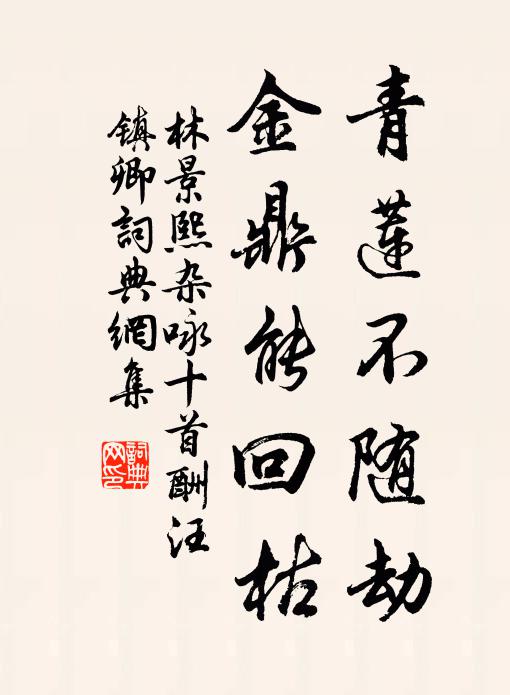 青蓮不随劫
金鼎能回枯
林景熙杂咏十首酬汪
镇卿詞典網集
詞典網印